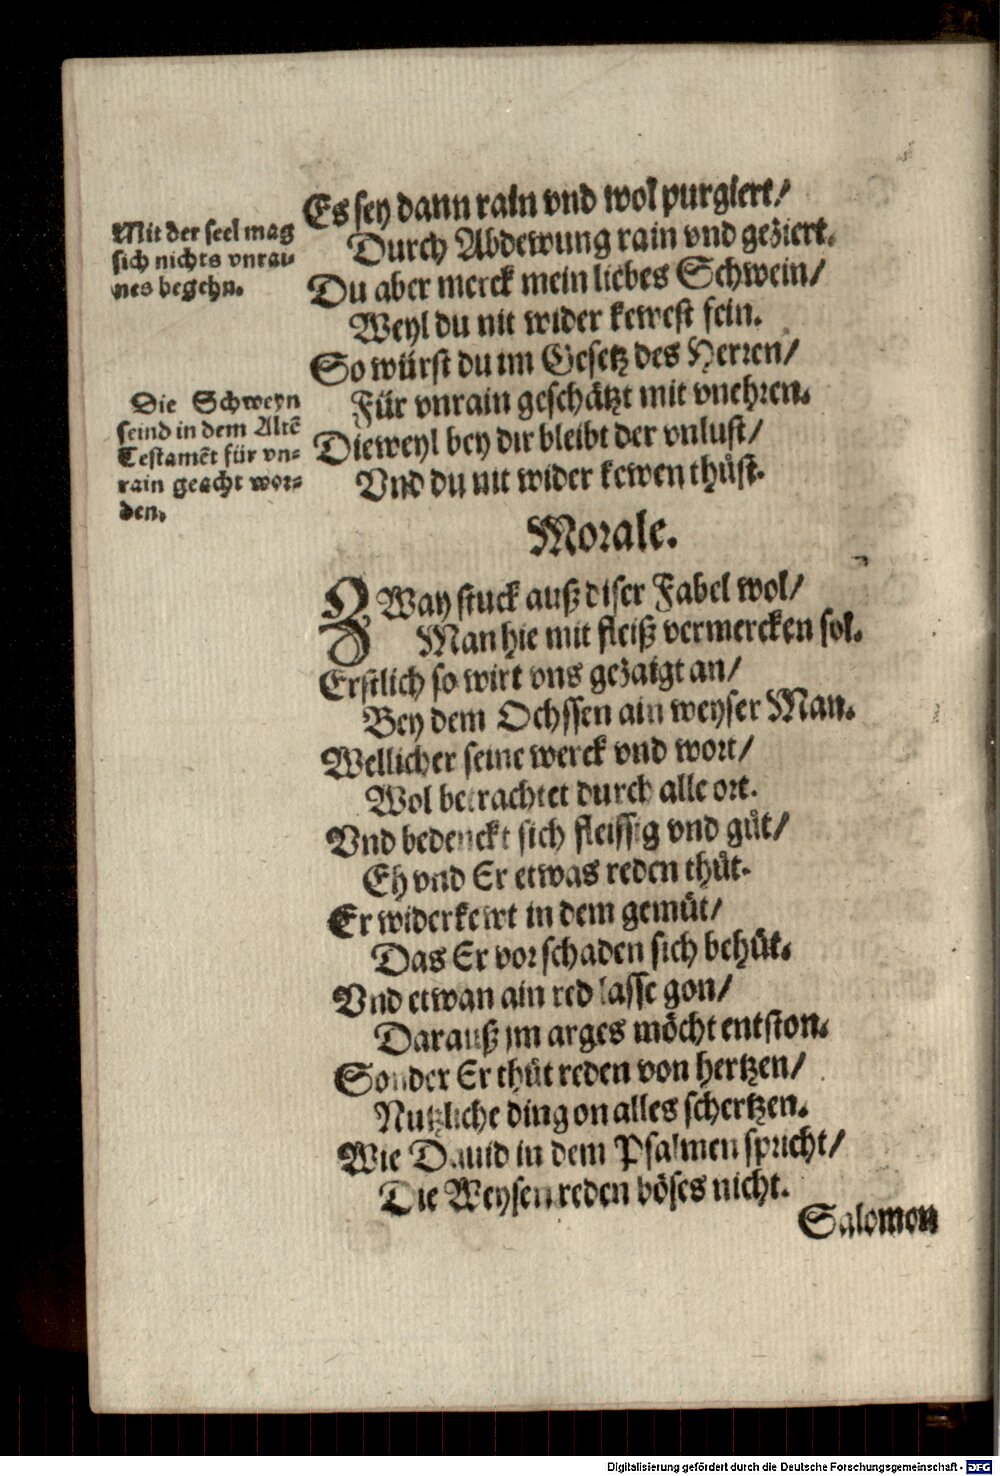 Es sey dann rain vnd wol purgiert/
Durch Abdewung rain vnd geziert.
Du aber merck mein liebes Schwein/
Weyl du nit wider kewest fein.
So würst du im Gesetz des Herren/
Für vnrain geschätzt mit vnehren.
Dieweyl bey dir bleibt der vnlust/
Vnd du nit wider kewen thůst.
Mit der seel mag
sich nichts vnrai-
nes begehn.
Die Schweyn
seind in dem Altē
Testamēt für vn-
rain geacht wor-
den.
Morale.
ZWay stuck auß diser Fabel wol/
Man hie mit fleiß vermercken sol.
Erstlich so wirt vns gezaigt an/
Bey dem Ochssen ain weyser Man.
Wellicher seine werck vnd wort/
Wol betrachtet durch alle ort.
Vnd bedenckt sich fleissig vnd gůt/
Eh vnd Er etwas reden thůt.
Er widerkewt in dem gemůt/
Das Er vor schaden sich behůt.
Vnd etwan ain red lasse gon/
Darauß jm arges möcht entston.
Sonder Er thůt reden von hertzen/
Nutzliche ding on alles schertzen.
Wie Dauid in dem Psalmen spricht/
Die Weysen reden böses nicht.
Salomon
Digitalisierung gefördert durch die Deutsche Forschungsgemeinschaft - DFG